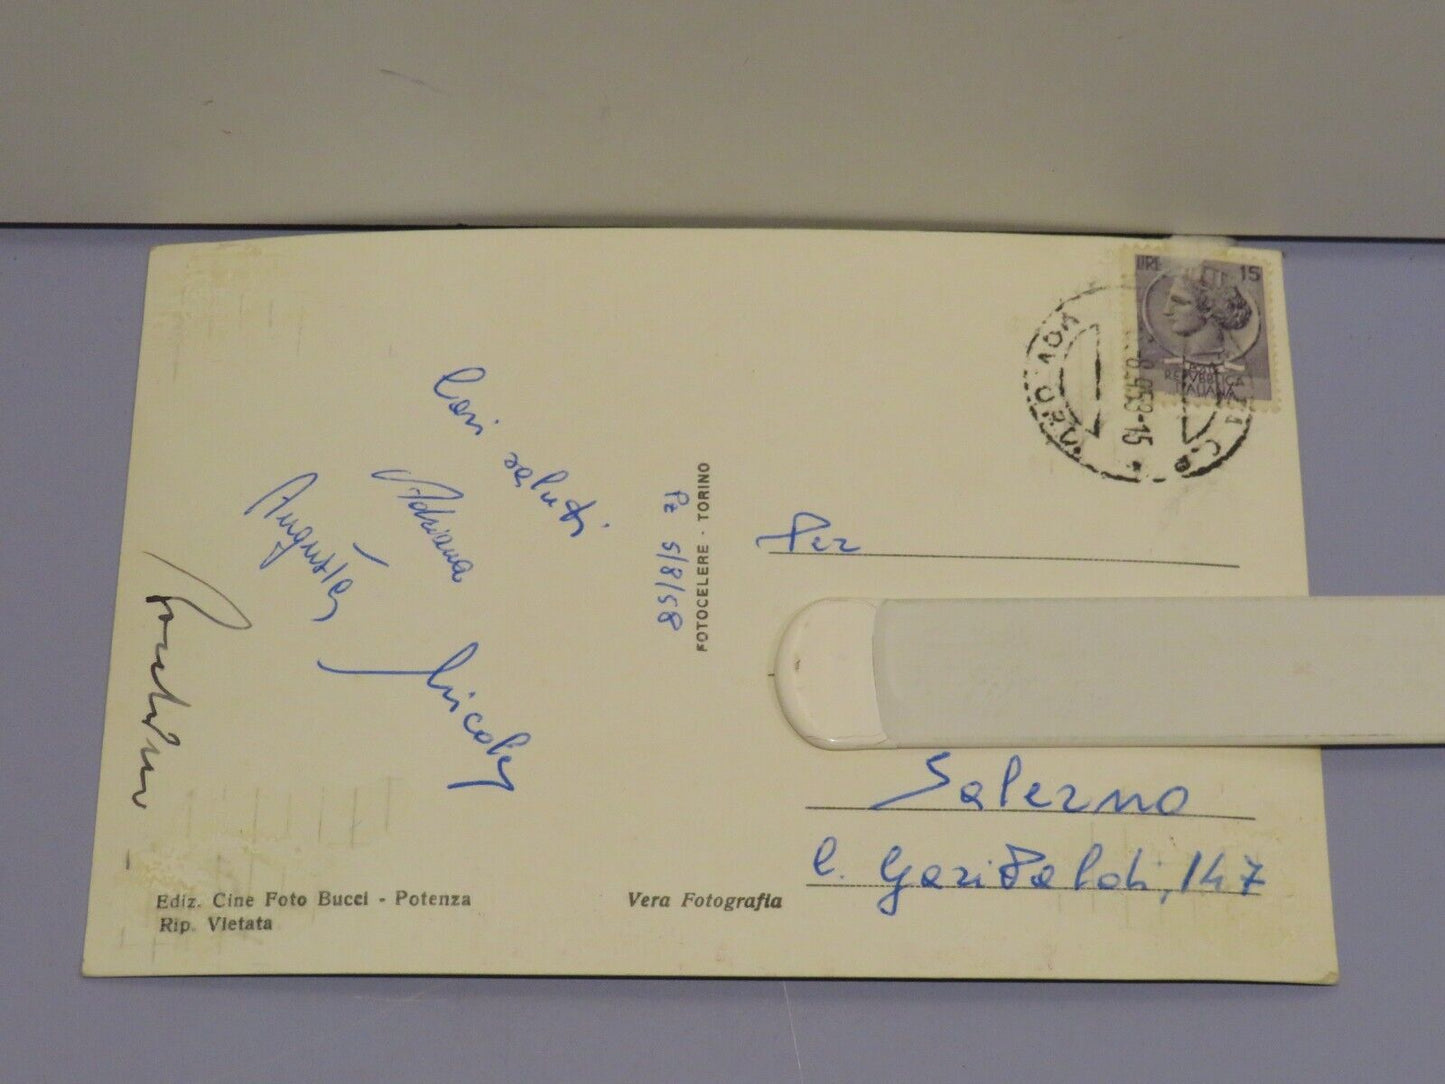 Cari
saluti
Adriana
Augusta
Nicola
Pz 5/8/58
FOTOCELERE - TORINO
LIRE 15
REPVBBLICA
ITALIANA
1958-15
Per
Salerno
C. Garibaldi, 147
Ediz. Cine Foto Bucci - Potenza
Rip. Vietata
Vera Fotografia